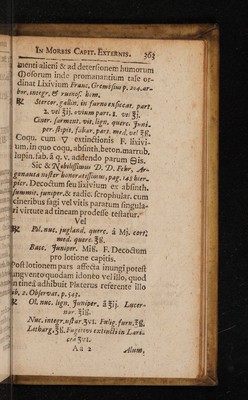 IN MORBIS CAPIT. EXTERNIS. 363
menti alieni & ad detersionem humorum
Mosorum inde promanantium tale or-
dinat Lixivium Franc. Grembsius p. 204. ar-
bor. integr. & ruinos. hom.
℞ Stercor. gallin. in furno exsiccat. part.
2. vel ʒij. ovium part. 1. vel ʒj.
Ciner. sarment. vit. lign. querc. Juni-
per. stipit. fabar. part. med. vel ʒß.
Coqu. cum extinctionis F. lixivi-
um, in quo coqu. absinth. beton. marrub.
lupin. fab. â q. v. addendo parum
Sic & Nobilissimus D. D. Fehr, Ar-
gonauta noster honoratissimus, pag. 145 hier-
picr. Decoctum seu lixivium ex absinth.
summit. juniper. & radic. scrophular. cum
cineribus sagi vel vitis paratum singula-
ri virtute ad tineam prodesse testatur.
Vel
℞ Fol. nuc. jugland. querc. â Mj. cort.
med. querc. ʒß.
Bacc. Juniper. Miß. F. Decoctum
pro lotione capitis.
Post lotionem pars affecta inungi potest
ungvento quodam idoneo vel illo, quod
in tinea adhibuit Platerus referente illo
lib. 2. Observat. p. 545.
℞ Ol. nuc. lign. Juniper. â ʒij. Later-
nar. ʒiß.
Nuc. integr. ustar. ʒvi. Fulig. furn. ʒß.
Letharg. ʒß. ☿ Fugitivi extincti in Lari-
ceâ ʒvi.
Aa 2 Alum.